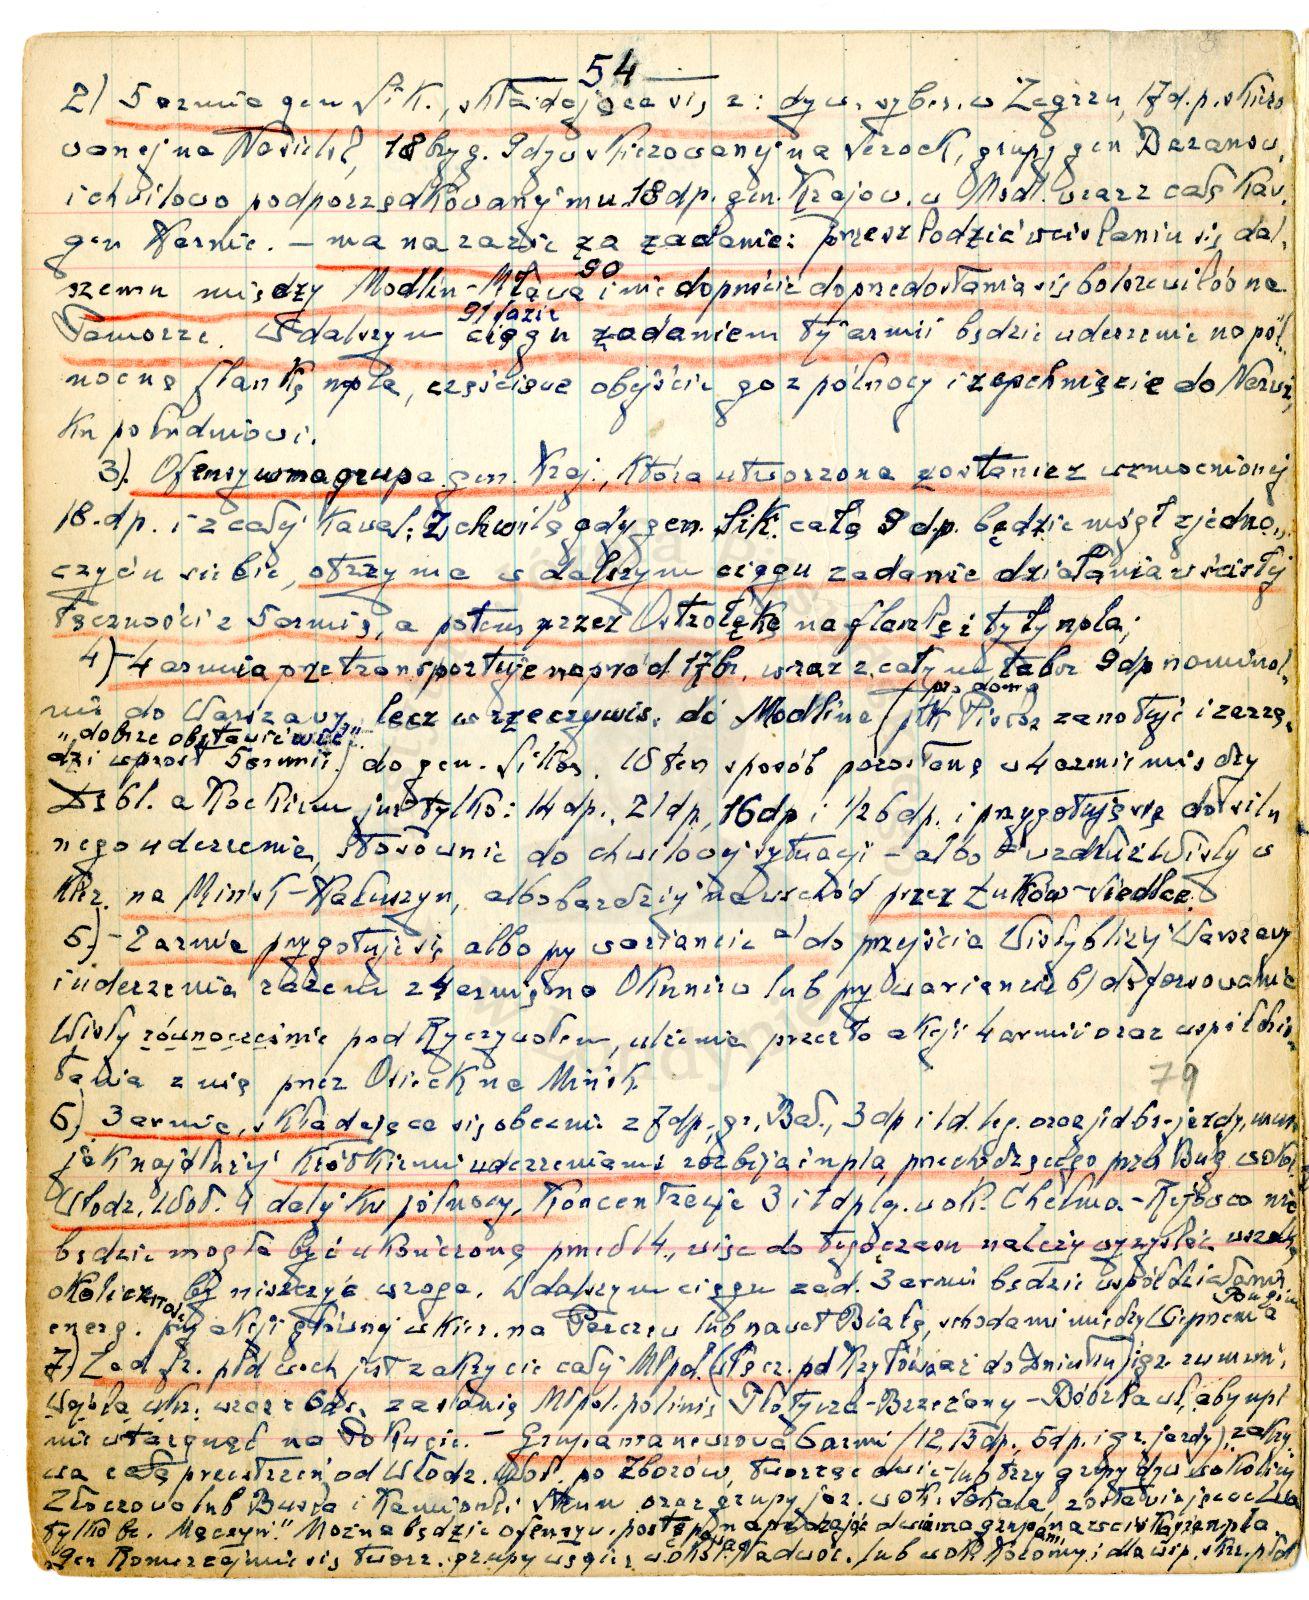 — 54 —
2) 5 armia gen Sik., składająca się z: dyw. syber. w Zegrzu, 17 d.p. skiero
wanej na Nasielsk, 18 bryg. 9 dyw skierowanej na Serock, grupy gen Baranow.
i chwilowo podporządkowanej mu 18 dp. gen. Krajow. w Modl. wraz z całą kaw.
gen Karnic. – ma na razie za zadanie: przeszkodzić wciskaniu się dal,
szemu między Modlin – Mława i nie dopuścić do przedostania się bolszewików na
90
Pomorze. W dalszym ciągu zadaniem tej armii będzie uderzenie na pół,
91 fazie
nocną flankę npla, częściowe obejście go z północy i zepchnięcie do Narwi,
ku południowi.
3). Ofensywna grupa gen. Kraj., która utworzona zostanie z wzmocnionej
18. dp. i z całej kawal; z chwilą gdy gen. Sik. całą 9 dp. będzie mógł zjedno,
czyć u siebie, otrzyma w dalszym ciągu zadanie działania w ścisłej
łączności z 5 armią, a potem przez Ostrołękę na flankę i tyły npla;
4) – 4 armia przetransportuje naprzód 17 br, wraz z całym tabor 9 dp nominal,
nie do Warszawy, lecz w rzeczywis. do Modlina (płk Piskor zanotuje i zarzą,
"dobrze obstawić wieś"
dzi wprost 5 armii.) do gen. Sikor. W ten sposób pozostaną w 4 armii między
Dębl. a Kockiem już tylko: 14 dp., 21 dp, 16 dp i 1/2 6 dp. i przygotują się do silu
nego uderzenia, stosownie do chwilowej sytuacji – albo wzdłuż Wisły w
kier. na Mińsk – Kałuszyn, albo bardziej na wschód przez Łuków – Siedlce.
5) – 2 armia przygotuje się albo przy wariancie a) do przejścia Wisły bliżej Warszawy
i uderzenia razem z 4 armią na Okuniew lub przy wariancie b) do forsowania
Wisły równocześnie pod Ryczywołem, ułatwienia przez to akcji 4 armii oraz współdzia,
łania z nią przez Osieck na Mińsk
79
6) 3 armia, składająca się obecnie z 7 dp, gr. Bał., 3 dp i 1 d. leg. oraz jedn br. jazdy, musi
jak najdłużej krótkimi uderzeniami rozbijać npla, przechodzącego przez Bug wokół
Włodz. Woł. i dalej ku północy. Koncentracja 3 i 1 dp leg. w ok. Chełma – Rejowca nie
będzie mogła być ukończoną przed 14., więc do tego czasu należy wyzyskać wszelką
okoliczność by niszczyć wroga. W dalszym ciągu zad. 3 armii będzie współdziałanie
energ. przy akcji głównej w kier. na Parczew lub nawet Białą, schodami między Wieprzem a
Bugiem
7) Zad. fr. płd wsch jest zakrycie całej Młpol. (włącz. pd Krystynopol aż do Dniestru) i gr. rumuń,
wojska ukr. wraz z 6 dp. zasłonią Młpol. po linię Płotycza – Brzeżany – Bóbrka wł., aby npl
nie wtargnął na Pokucie. – Grupa manewrowa 6 armii (12, 13 dp, 5 dp. i gr. jazdy), zakry,
wa całą przestrzeń od Włodz. Woł. po Zborów, tworząc dwie lub trzy grupy dyw w okolicy
Złoczowa lub Buska i Kamionki Strum oraz grupy jaz. w ok. Sokala zostawiając
tylko be. Mączyń." Można będzie ofensyw.